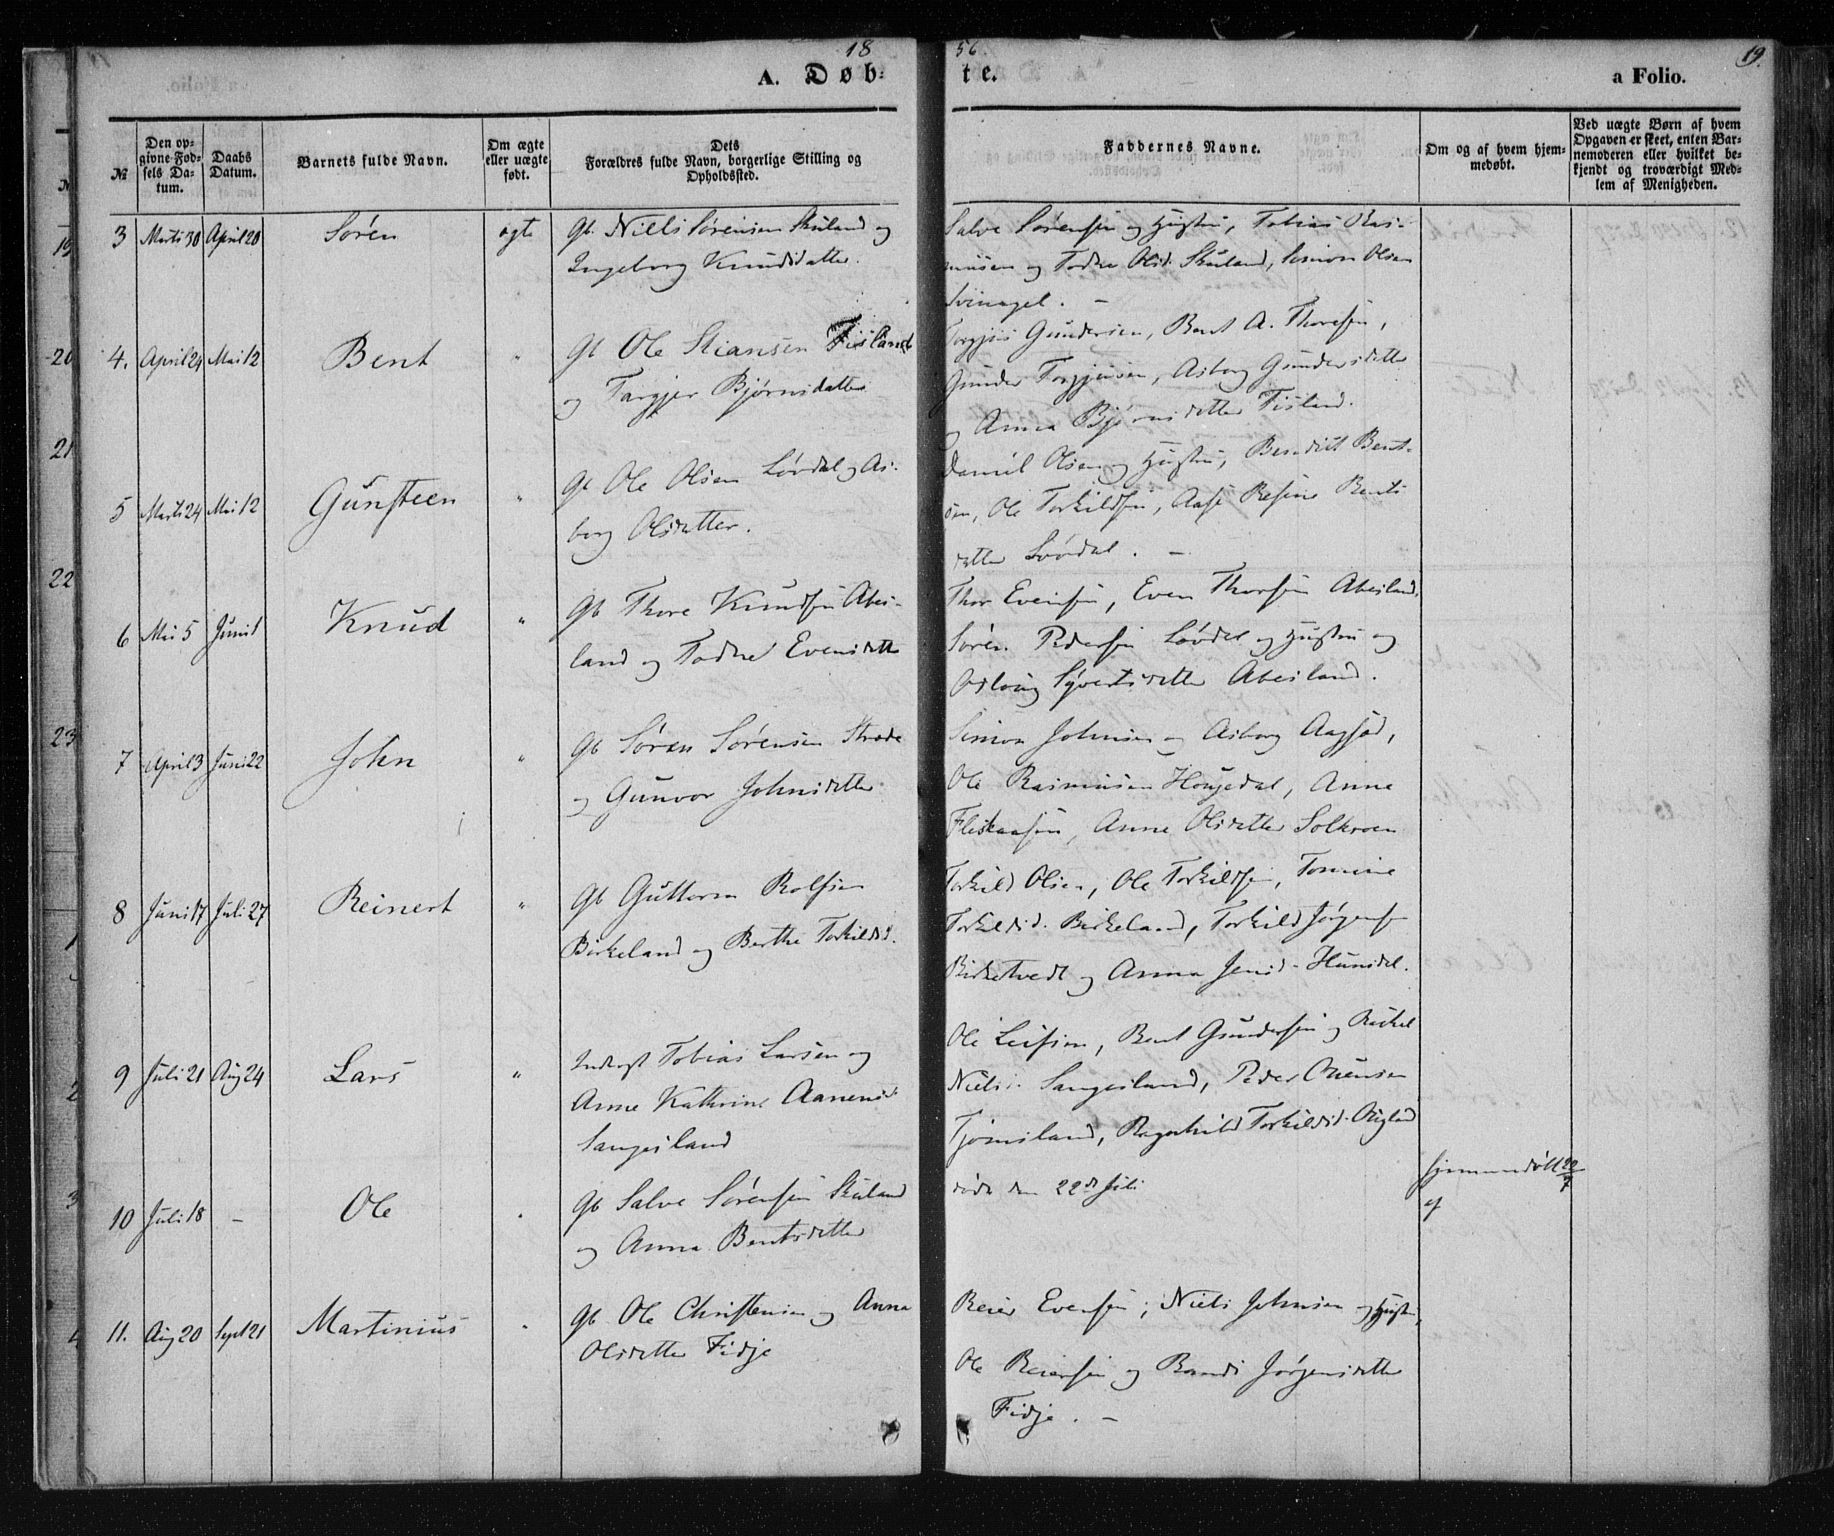 18 56 19.
A. Døb- te. a Folio.
№
Den opgivne Fødsels Datum.
Daabs Datum.
Barnets fulde Navn.
Om ægte eller uægte født.
Dets Forældres fulde Navn, borgerlige Stilling og Opholdssted.
Faddernes Navne.
Om og af hvem hjemmedøbt.
Ved uægte Børn af hvem Opgaven er skeet, enten Barnemoderen eller hvilket bekjendt og troværdigt Medlem af Menigheden.
3 Marts 30 April 20 Søren ægte Gb Niels Sørensen Skuland og
Ingeborg Knudsdatter.
Salve Sørensen og Hustru, Tobias Ras-
musen og Todne Olsd. Skuland, Simon Olsen
4. April 24 Mai 12 Bent " Gb Ole Stiansen Fisland
og Targjer Bjørnsdatter
Torgjus Gundersen, Bent A. Thoresen,
Gunder Torgjusen, Asborg Gundersdatter
og Anna Bjørnsdatter Fisland.
5 Marts 24 Mai 12 Gunsteen " Gb Ole Olsen Løvdal og As-
borg Olsdatter.
Daniel Olsen og Hustru, Benedict Bent-
sen, Ole Torkildsen, Aase Resine Bents
datter Løvdal. —
6 Mai 5 Juni 1 Knud " Gb Thore Knudsen Abes-
land og Todne Evensdatter
Thor Evensen, Even Thorsen Abesland,
Søren Pedersen Løvdal og Hustru og
Aslaug Syvertsdatter Abesland.
7 April 3 Juni 22 John " Gb Søren Sørensen Strøde
og Gunvor Johnsdatter
Simon Johnsen og Asborg
Ole Rasmusen Hougedal, Anne
Anne Olsdatter
8 Juni 17 Juli 27 Reinert " Gb Guttorm Rolfsen
Birkeland og Berthe Torkildsd.
Torkild Olsen, Ole Torkildsen, Tomine
Torkildsd. Birkeland, Torkild Jørgensen
Birketvedt og Anna Jensd. Hunsdal.
9 Juli 21 Aug 24 Lars " Inderst Tobias Larsen og
Anne Kathrine Aanensd.
Sangesland
Ole Leifsen, Bent Gundersen og Rachel
Nielsd. Sangesland, Peder
Tjomsland, Ragnhild Torkildsd.
10 Juli 18 — Ole " Gb Salve Sørensen Skuland
og Anna Bentsdatter
døde den 22de Juli
hjemmedøbt 22/7
af
11. Aug 20 Sept 21 Martinius " Gb Ole Christensen og Anna
Olsdatter Fidje
Reier Evensen, Niels Johnsen og Hustru,
Ole Reiersen og Randi Jørgensdatter
Fidje. —
19
20
21
22
23